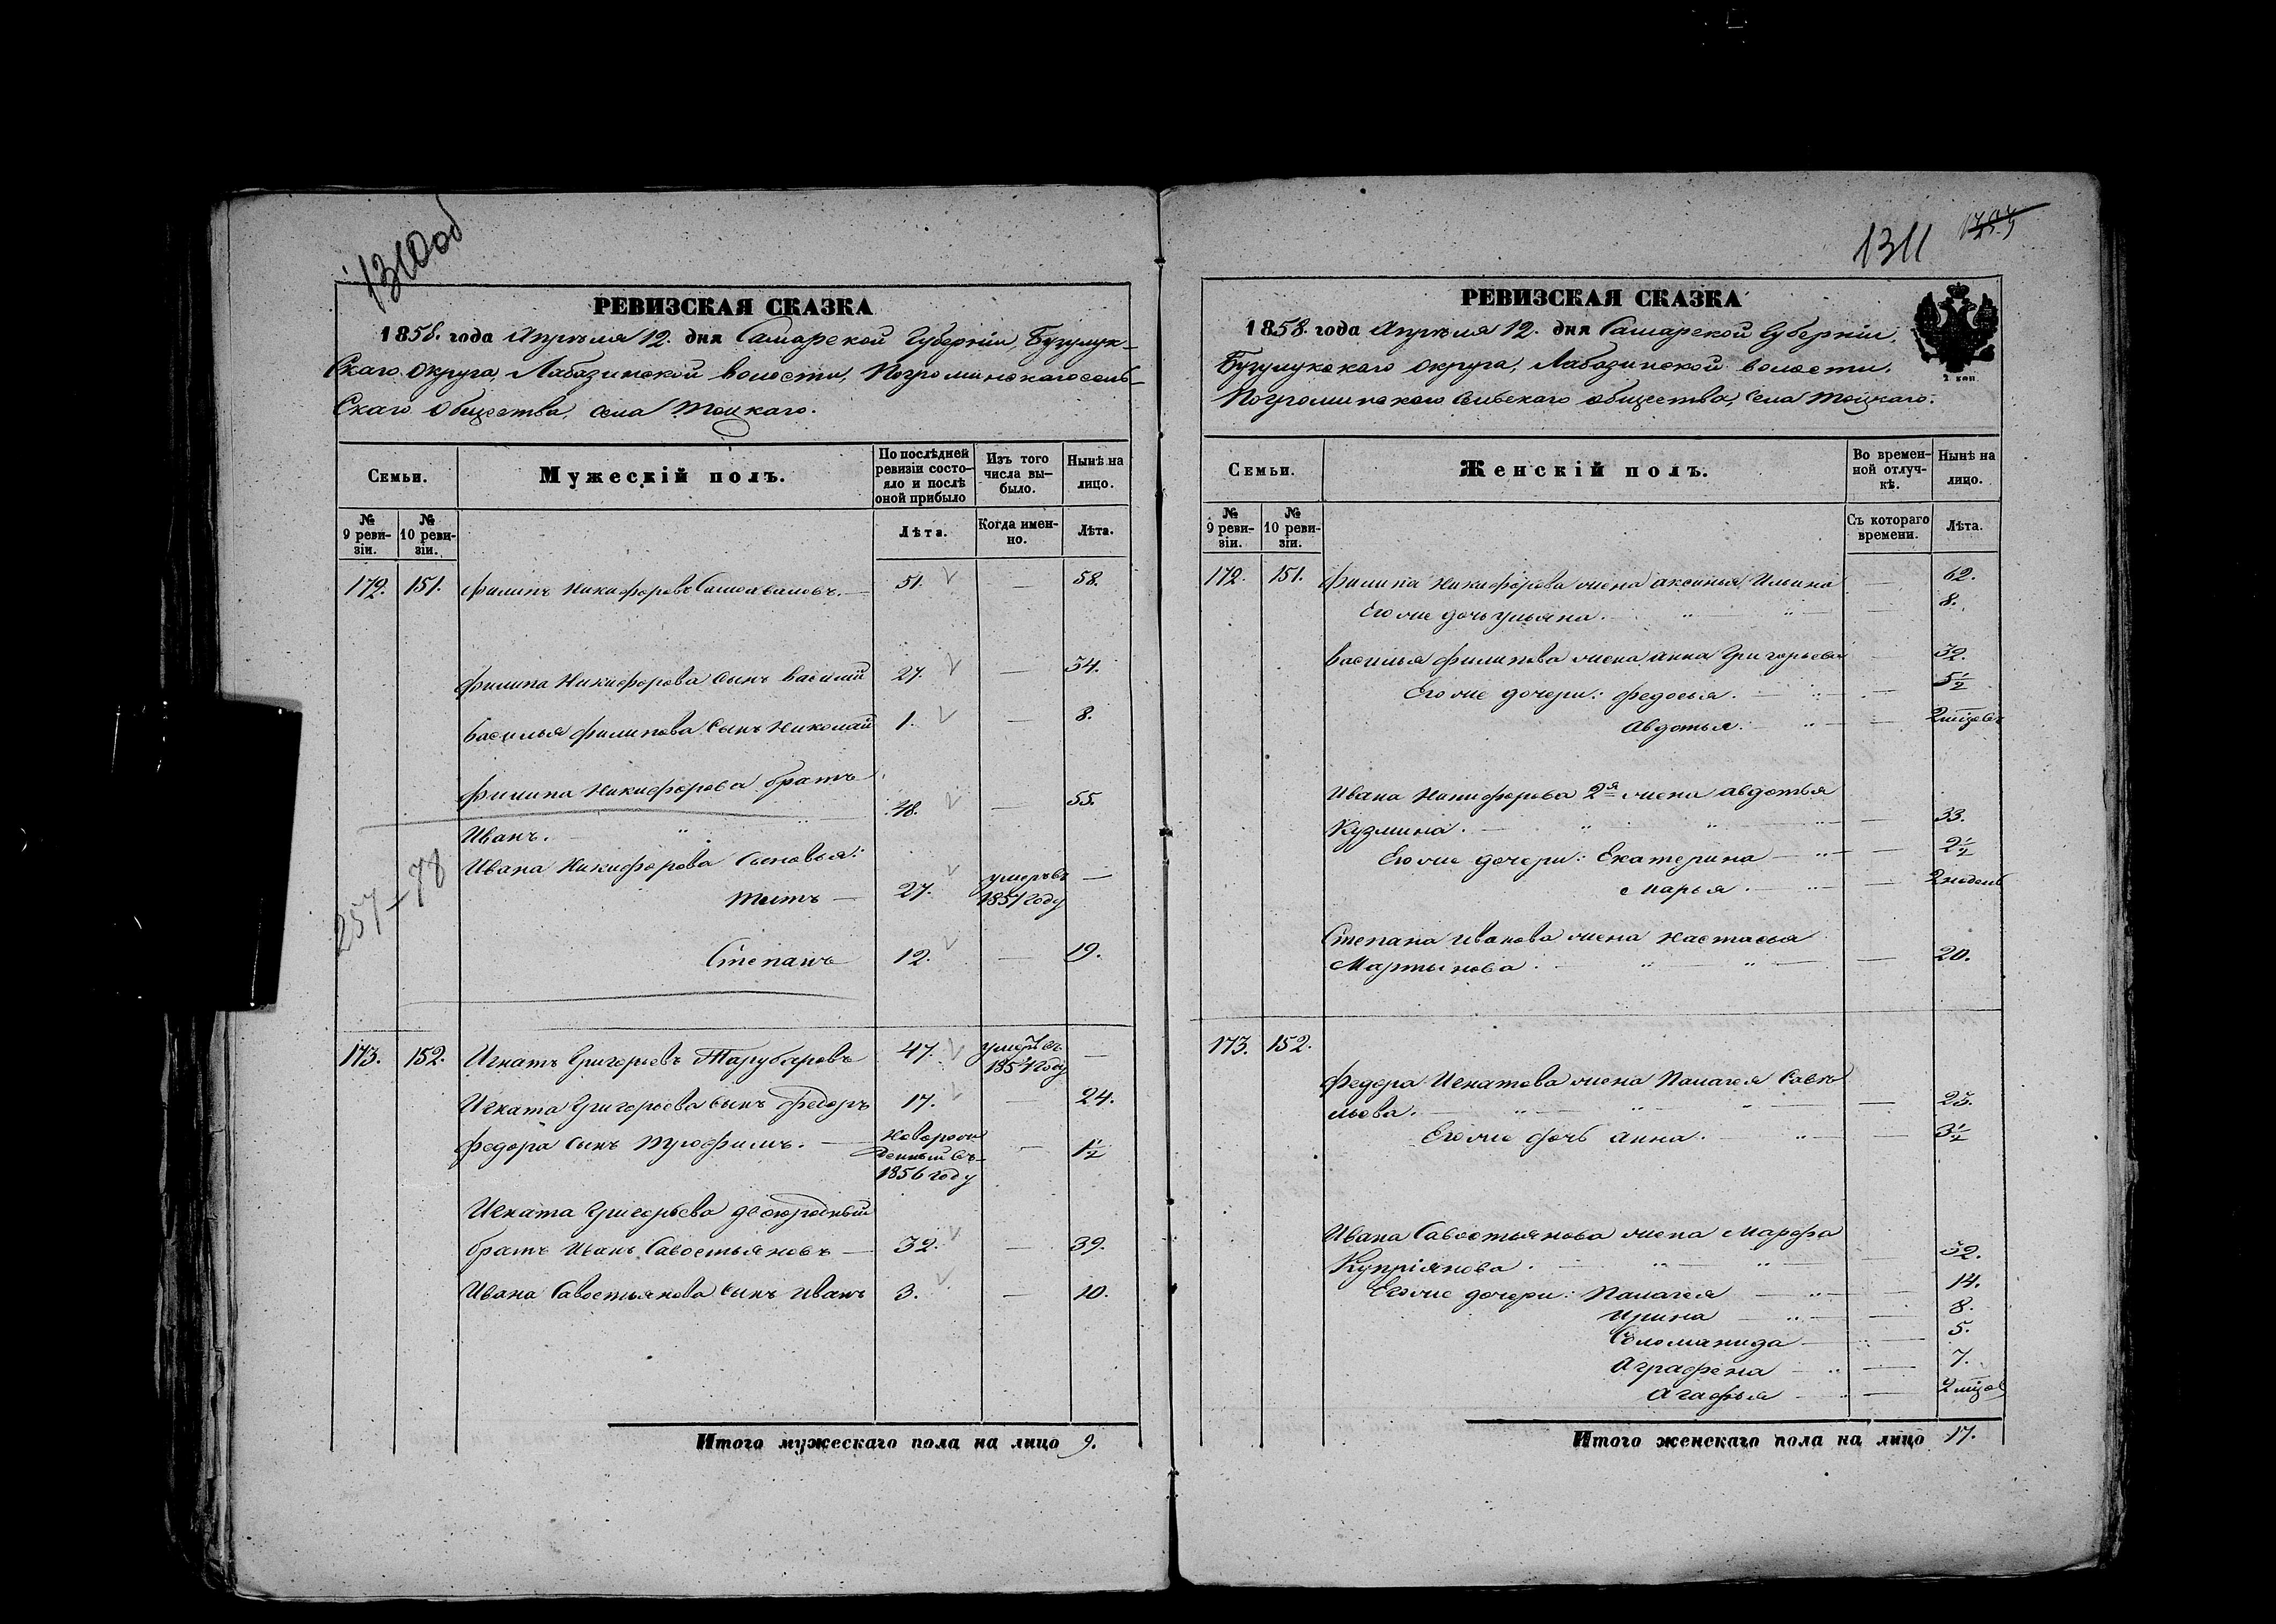 1310 об
РЕВИЗСКАЯ СКАЗКА
1858. года Апрѣля 12. дня Самарской Губерніи, Бузулук-
скаго округа, Лабазинской волости, Погроминскаго сель-
скаго общества, села Тоцкаго.
Семьи.
Мужескій полъ.
По послѣдней ревизіи состояло и послѣ оной прибыло
Изъ того числа выбыло.
Нынѣ на лицо.
№ 9 ревизіи.
№ 10 ревизіи.
Лѣта.
Когда именно.
Лѣта.
172. 151. Филипъ Никифоровъ 51. — 58.
Филипа Никифорова сынъ Василий 27. — 34.
Василья Филипова сынъ Николай 1. — 8.
Филипа Никифорова братъ
Иванъ. 48. — 55.
Ивана Никифорова сыновья:
Титъ — 27. умеръ въ 1857 году —
Степанъ 12. — 19.
257-78
173. 152. Игнатъ Григорьевъ 47. умеръ въ 1854 году —
Игната Григорьева сынъ Федоръ 17. — 24.
Федора сынъ Труофимъ. — новорожденный въ 1856 году — 1½
Игната Григорьева двоюродный
братъ Иванъ Савостьяновъ — 32. — 39.
Ивана Савостьянова сынъ Иванъ 3. — 10.
Итого мужескаго пола на лицо 9.
1311
РЕВИЗСКАЯ СКАЗКА
1858. года Апрѣля 12. дня Самарской Губерніи,
Бузулукскаго округа, Лабазинской волости.
Погроминскаго сельскаго общества, села Тоцкаго.
2 коп
Семьи.
Женскій полъ.
Во временной отлучкѣ.
Нынѣ на лицо.
№ 9 ревизіи.
№ 10 ревизіи.
Съ котораго времени.
Лѣта.
172. 151. Филипа Никифорова жена Аксинья — 62.
Его же дочь Ульяна. — 8.
Василья Филипова жена Анна Григорьева — 32.
Его же дочери: Федосья. — 5½
Авдотья. — 2 мѣсяцовъ
Ивана Никифорова 2я жена Авдотья
Кузмина. — 33.
Его же дочери: Екатерина — 2½
Марья. — 2 недель
Степана Иванова жена Настасья
Мартынова. — 20.
173. 152.
Федора Игнатова жена Палагея Савѣ
льева. — 23.
Его же дочь Анна. — 3½
Ивана Савостьянова жена Марфа
Купріянова. — 32.
Его же дочери: Палагея — 14.
Ирина — 8.
Соломанида — 5.
Аграфена — 7.
Агафья — 2 мѣсяцов
Итого женскаго пола на лицо 17.